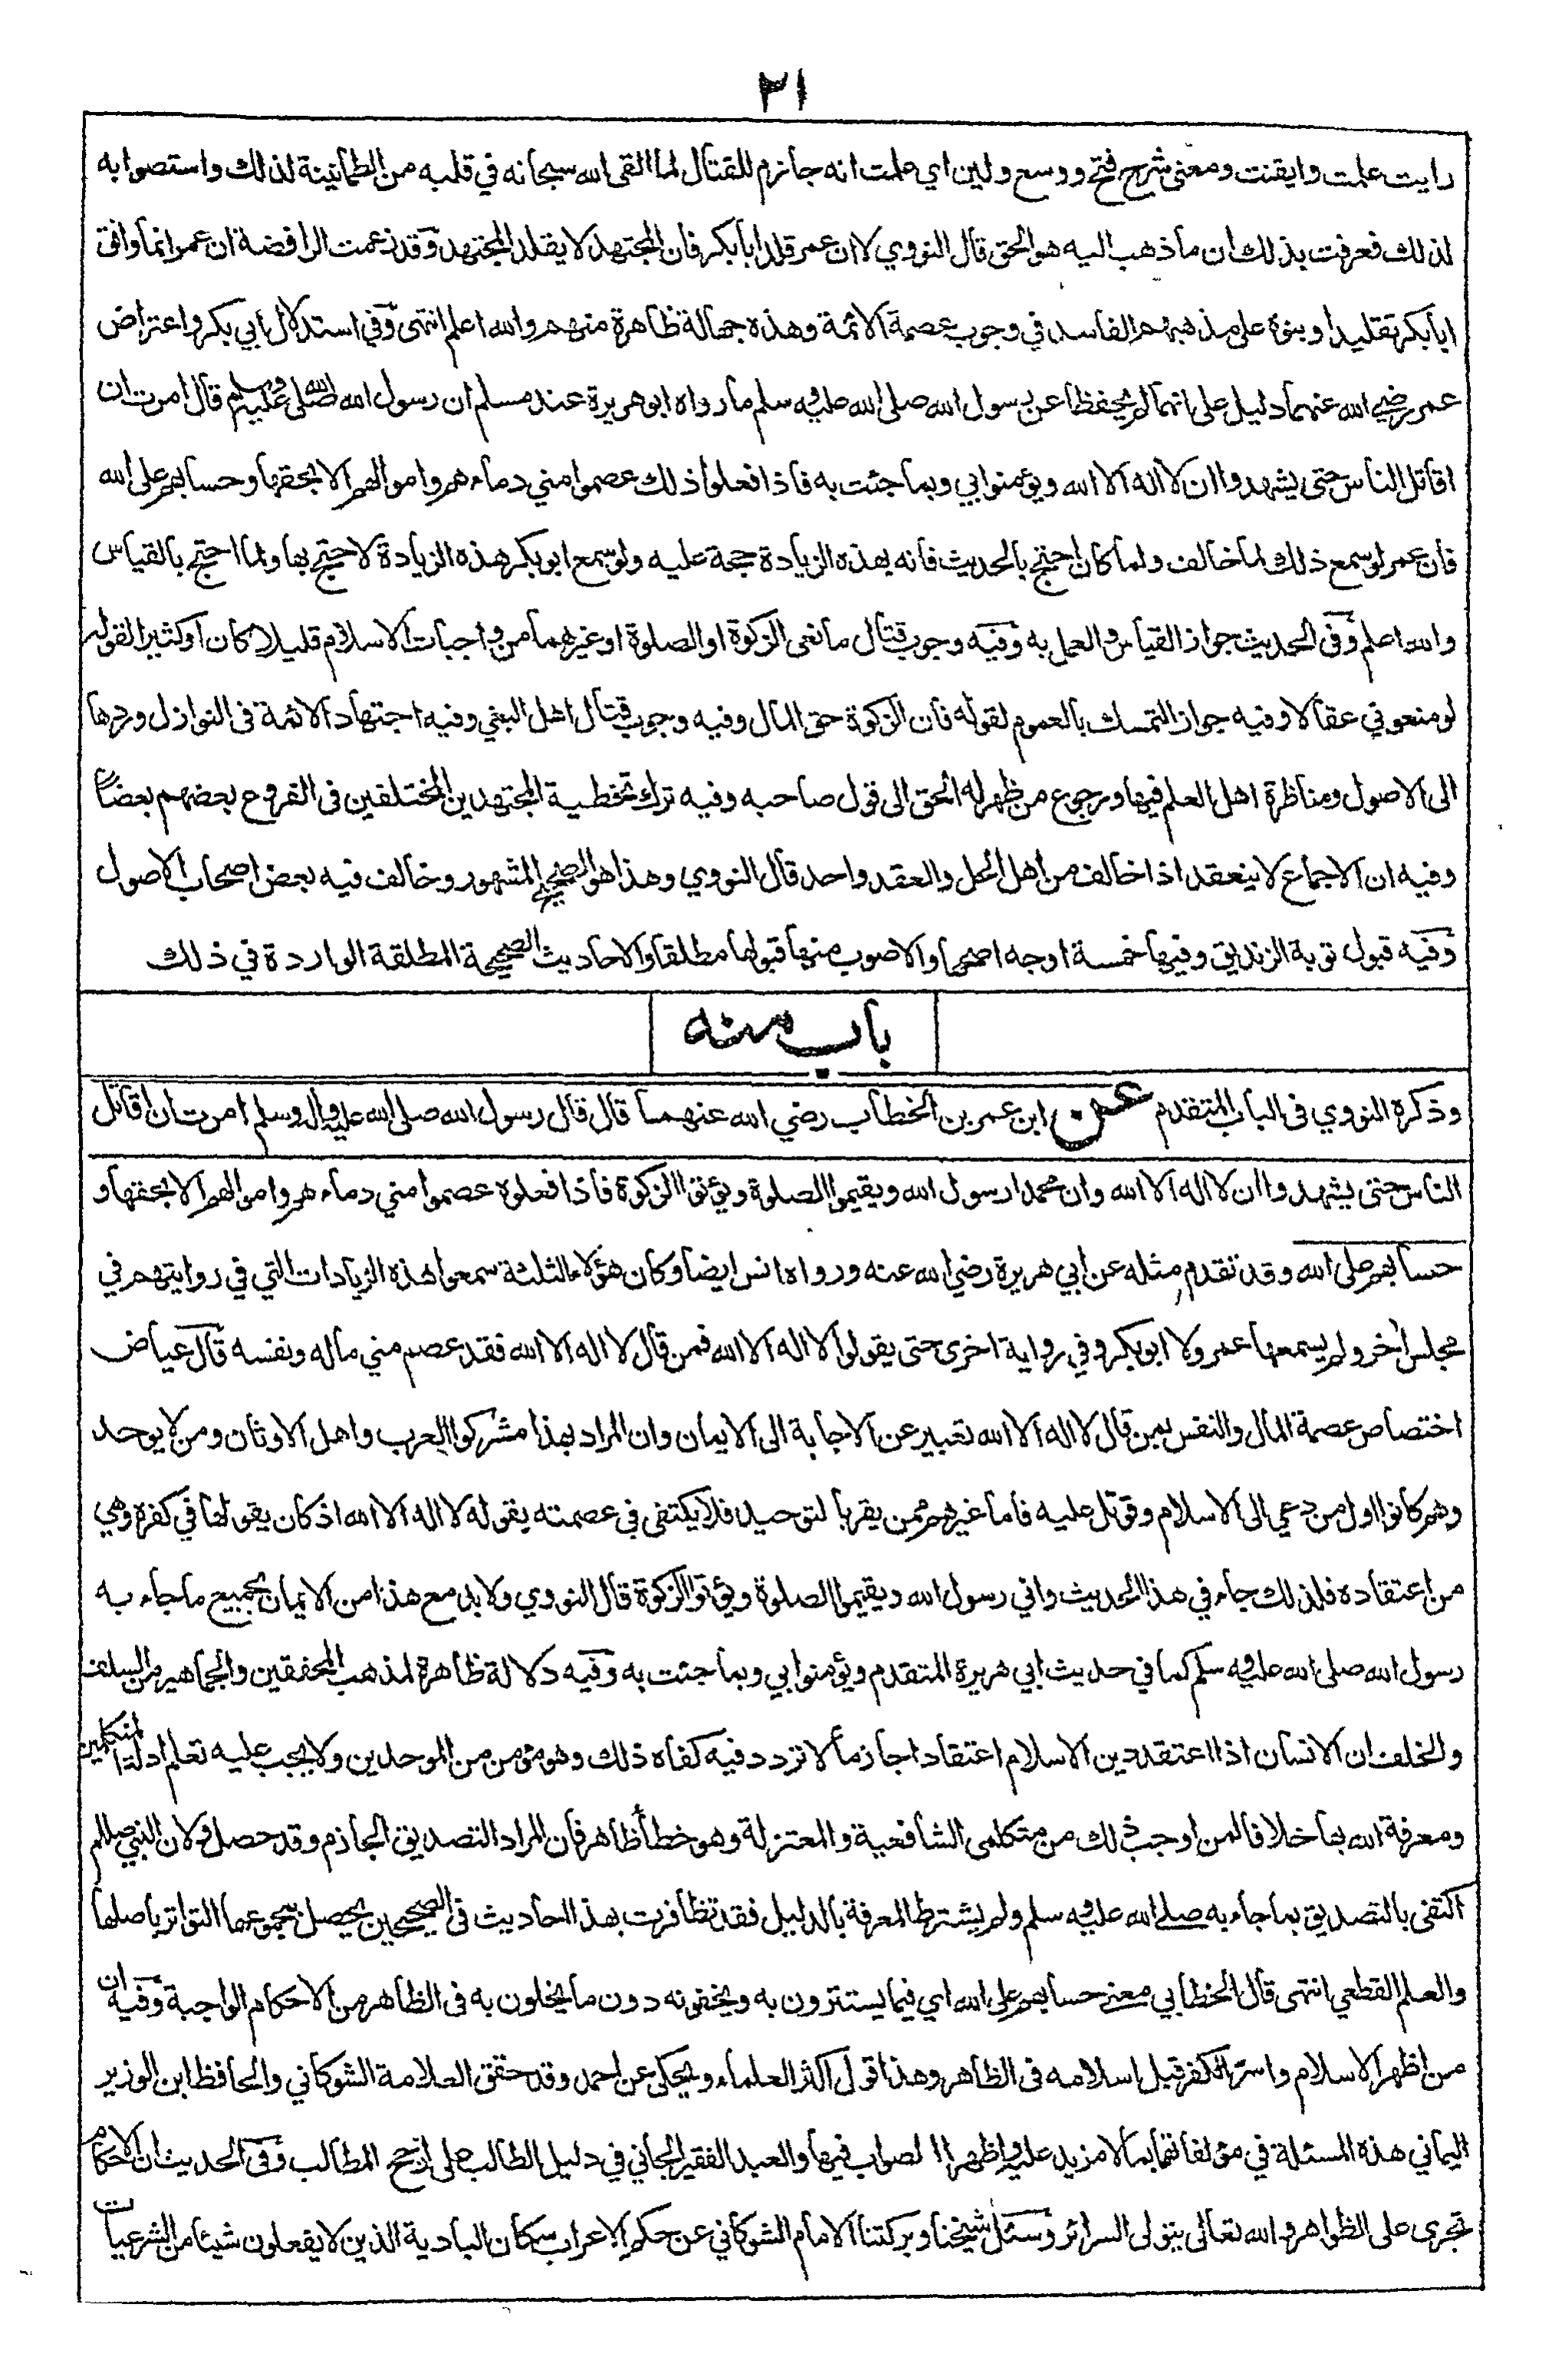 ٢١
رايت علمت وايقنت ومعنى شرح فتح ووسع ولين اي علمت انه جازم للقتال لما القى الله سبحانه في قلبه من الطمانينة لذلك واستصوابه
لذلك فعرفت بذلك ان ما ذهب اليه هو الحق قال النووي لا ان عمر قلد ابا بكر فان المجتهد لا يقلد المجتهد وقد زعمت الرافضة ان عمر انما وافق
ابا بكر تقليدا وبنوه على مذهبهم الفاسد في وجوب عصمة الائمة وهذه جهالة ظاهرة منهم والله اعلم انتهى وفي استدلال ابي بكر واعتراض
عمر رضي الله عنهما دليل على انهما لم يحفظا عن رسول الله صلى الله عليه وسلم ما رواه ابو هريرة عند مسلم ان رسول الله صلى الله عليه وسلم قال امرت ان
اقاتل الناس حتى يشهدوا ان لا اله الا الله ويؤمنوا بي وبما جئت به فاذا فعلوا ذلك عصموا مني دماءهم واموالهم الا بحقها وحسابهم على الله
فان عمر لو سمع ذلك لما خالف ولما كان احتج بالحديث فانه بهذه الزيادة حجة عليه ولو سمع ابو بكر هذه الزيادة لاحتج بها ولما احتج بالقياس
والله اعلم وفي الحديث جواز القياس والعمل به وفيه وجوب قتال مانعى الزكوة او الصلوة او غيرهما من واجبات الاسلام قليلا كان او كثيرا لقوله
لو منعوني عقالا وفيه جواز التمسك بالعموم لقوله فان الزكوة حق المال وفيه وجوب قتال اهل البغي وفيه اجتهاد الائمة فى النوازل وردها
الى الاصول ومناظرة اهل العلم فيها ورجوع من ظهر له الحق الى قول صاحبه وفيه ترك تخطية المجتهدين المختلفين فى الفروع بعضهم بعضا
وفيه ان الاجماع لا ينعقد اذا خالف من اهل الحل والعقد واحد قال النووي وهذا هو الصحيح المشهور وخالف فيه بعض اصحاب الاصول
وفيه قبول توبة الزنديق وفيها خمسة اوجه اصحها والاصوب منها قبولها مطلقا والاحاديث الصحيحة المطلقة الواردة في ذلك
باب منه
وذكره النووي فى الباب المتقدم عن ابن عمر بن الخطاب رضي الله عنهما قال قال رسول الله صلى الله عليه واله وسلم امرت ان اقاتل
الناس حتى يشهدوا ان لا اله الا الله وان محمدا رسول الله ويقيموا الصلوة ويؤتوا الزكوة فاذا فعلوه عصموا مني دماءهم واموالهم الا بحقها و
حسابهم على الله وقد تقدم مثله عن ابي هريرة رضي الله عنه ورواه انس ايضا وكان هؤلاء الثلثة سمعوا هذه الزيادات التي في روايتهم في
مجلس اخر ولم يسمعها عمر ولا ابو بكر وفي رواية اخرى حتى يقولوا لا اله الا الله فمن قال لا اله الا الله فقد عصم مني ماله ونفسه قال عياض
اختصاص عصمة المال والنفس بمن قال لا اله الا الله تعبير عن الاجابة الى الايمان وان المراد بهذا مشركوا العرب واهل الاوثان ومن لا يوحد
وهم كانوا اول من دعي الى الاسلام وقوتل عليه فاما غيرهم ممن يقر بالتوحيد فلا يكتفى في عصمته بقوله لا اله الا الله اذ كان يقولها في كفره وهي
من اعتقاده فلذلك جاء في هذا الحديث واني رسول الله ويقيموا الصلوة ويؤتوا الزكوة قال النووي ولا بد مع هذا من الايمان بجميع ما جاء به
رسول الله صلى الله عليه وسلم كما في حديث ابي هريرة المتقدم ويؤمنوا بي وبما جئت به وفيه دلالة ظاهرة لمذهب المحققين والجماهير من السلف
والخلف ان الانسان اذا اعتقد دين الاسلام اعتقادا جازما لا تردد فيه كفاه ذلك وهو مؤمن من الموحدين ولا يجب عليه تعلم ادلة المتكلمين
ومعرفة الله بها خلافا لمن اوجب ذلك من متكلمى الشافعية والمعتزلة وهو خطأ ظاهر فان المراد التصديق الجازم وقد حصل ولان النبي صللم
اكتفى بالتصديق بما جاء به صلى الله عليه وسلم ولم يشترط المعرفة بالدليل فقد تظافرت بهذا احاديث فى الصحيحين يحصل بمجموعها التواتر باصلها
والعلم القطعي انتهى قال الخطابي معنى حسابهم على الله اي فيما يستترون به ويخفونه دون ما يخلون به فى الظاهر من الاحكام الواجبة وفيه ان
من اظهر الاسلام واسر الكفر قبل اسلامه فى الظاهر وهذا قول اكثر العلماء ويحكى عن احمد وقد حقق العلامة الشوكاني والحافظ ابن الوزير
اليماني هذه المسئلة في مؤلفاتهما بما لا مزيد عليه واظهرا الصواب فيها والعبد الفقير الجاني في دليل الطالب على ارجح المطالب وفى الحديث ان الاحكام
تجرى على الظواهر والله تعالى يتولى السرائر وسئل شيخنا وبركتنا الامام الشوكاني عن حكم الاعراب سكان البادية الذين لا يفعلون شيئا من الشرعيات